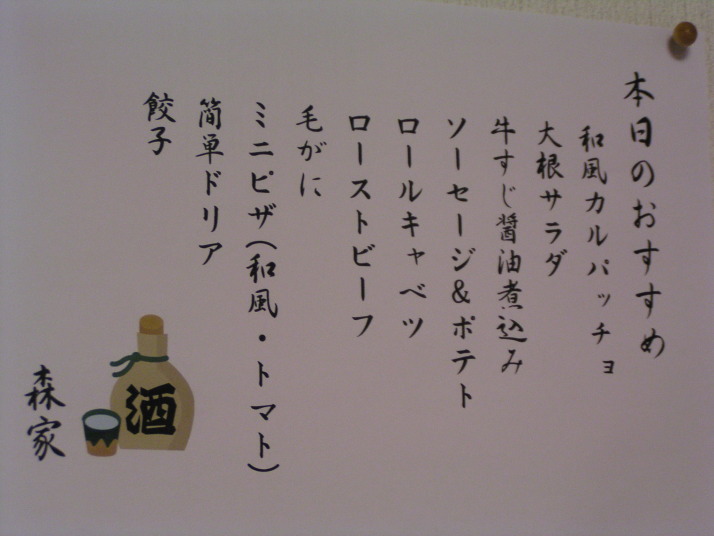 本日のおすすめ
和風カルパッチョ
大根サラダ
牛すじ醤油煮込み
ソーセージ&ポテト
ロールキャベツ
ローストビーフ
毛がに
ミニピザ(和風・トマト)
簡単ドリア
餃子
酒
森家